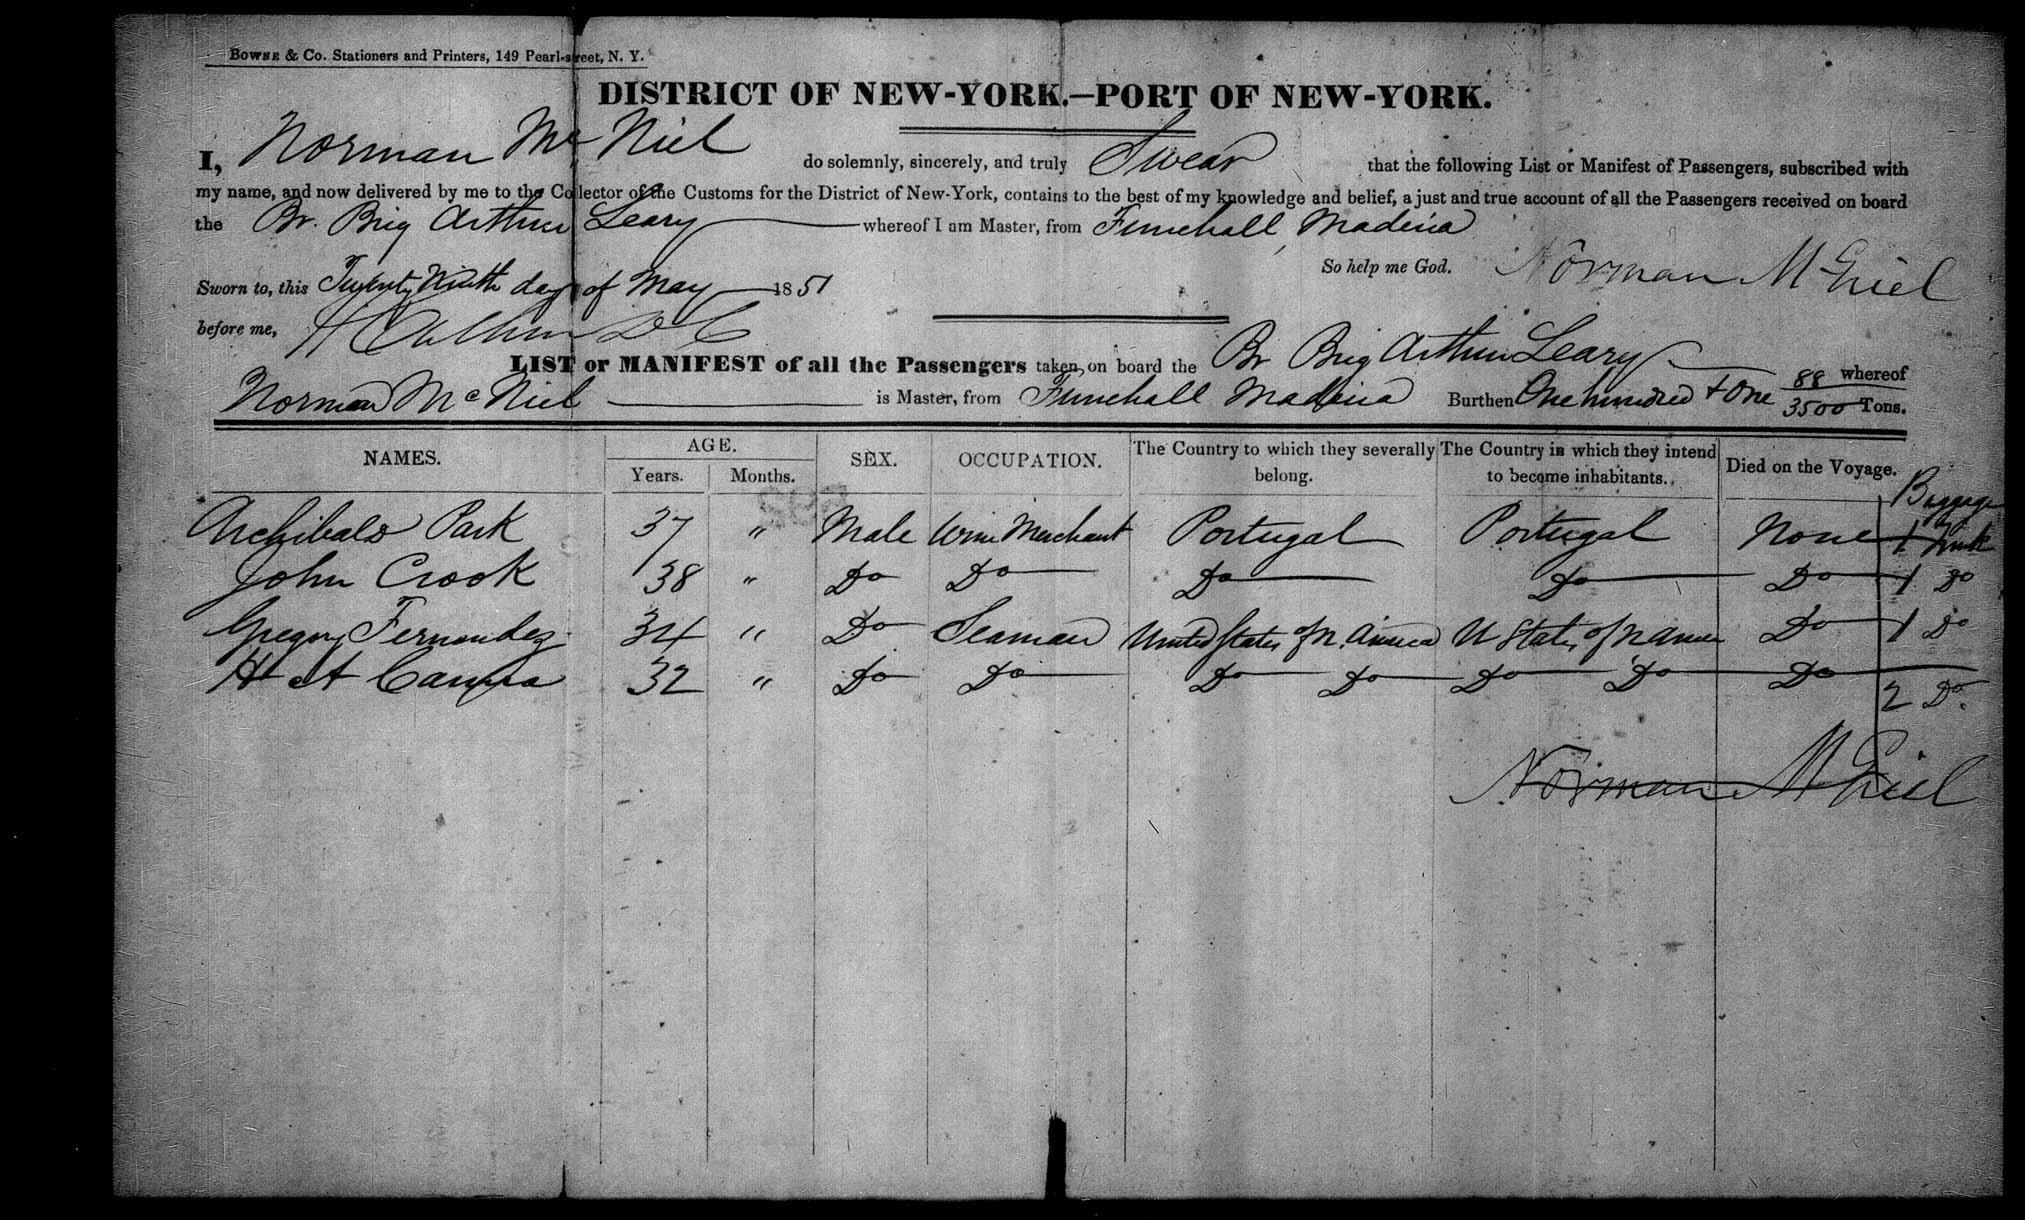 BOWNE & CO. Stationers and Printers, 149 Pearl-street, N. Y.
DISTRICT OF NEW-YORK.—PORT OF NEW-YORK.
I, Norman Mc Niel do solemnly, sincerely, and truly Swear that the following List or Manifest of Passengers, subscribed with
my name, and now delivered by me to the Collector of the Customs for the District of New-York, contains to the best of my knowledge and belief, a just and true account of all the Passengers received on board
the Br. Brig Arthur Leary whereof I am Master, from Funchall, Madeira
So help me God. Norman McNiel
Sworn to, this Twenty Ninth day of May 1851
before me,
LIST or MANIFEST of all the Passengers taken on board the Br Brig Arthur Leary whereof
Norman McNiel is Master, from Funchall Madeira Burthen One hundred + One 88/3500 Tons.
NAMES. AGE. SEX. OCCUPATION. The Country to which they severally belong. The Country in which they intend to become inhabitants. Died on the Voyage. Baggage
Years. Months.
Archibald Park 37 " Male Wine Merchant Portugal Portugal None 1 Trunk
John Crook 38 " Do Do Do Do Do 1 Do
Gregory Fernandez 34 " Do Seaman United States of N. America U States of N Amer Do 1 Do
H A 32 " Do Do Do Do Do Do Do 2 Do.
Norman McNiel